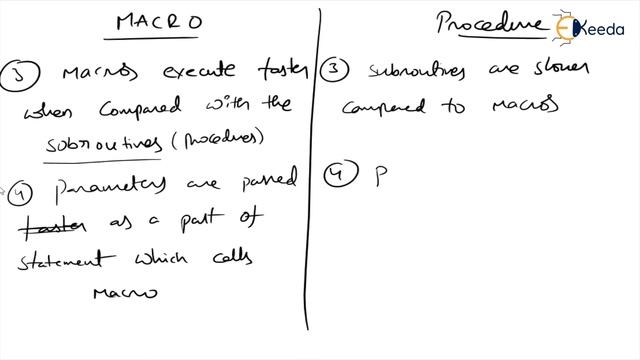 MACRO
③ Macros execute faster
when compared with the
subroutines (procedures)
④ Parameters are passed
faster as a part of
statement which calls
macro
Procedure
Keeda
③ Subroutines are slower
compared to macros
④ P